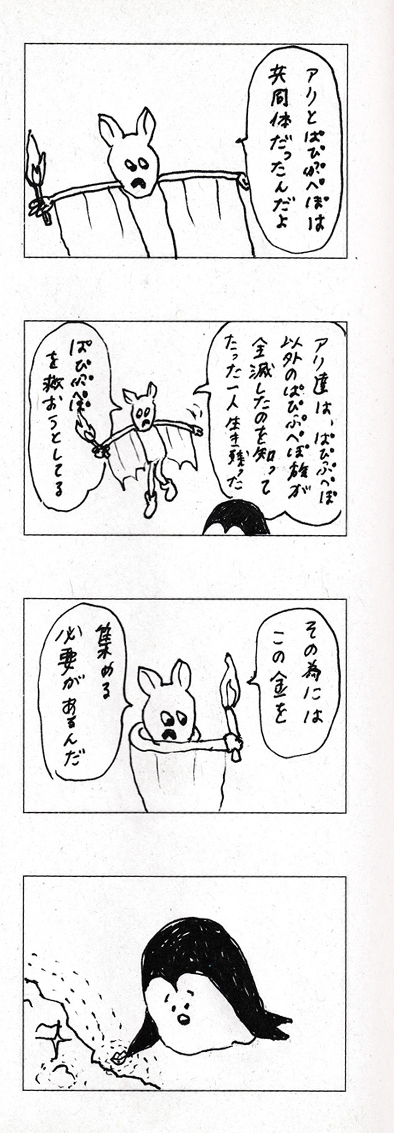 アリとぱぴぷぺぽは
共同体だったんだよ
アリ達は、ぱぴぷぺぽ
以外のぱぴぷぺぽ族が
全滅したのを知って
たった一人生き残った
ぱぴぷぺぽ
を救おうとしてる
その為には
この金を
集める
必要があるんだ